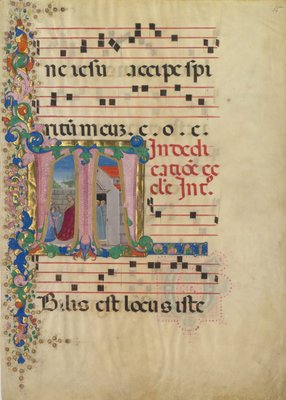 ne iesu accipe spi
ritū meuz. e. o. c.
In dedi
catiōe ec
cl'e Int.
T
Bilis est locus iste